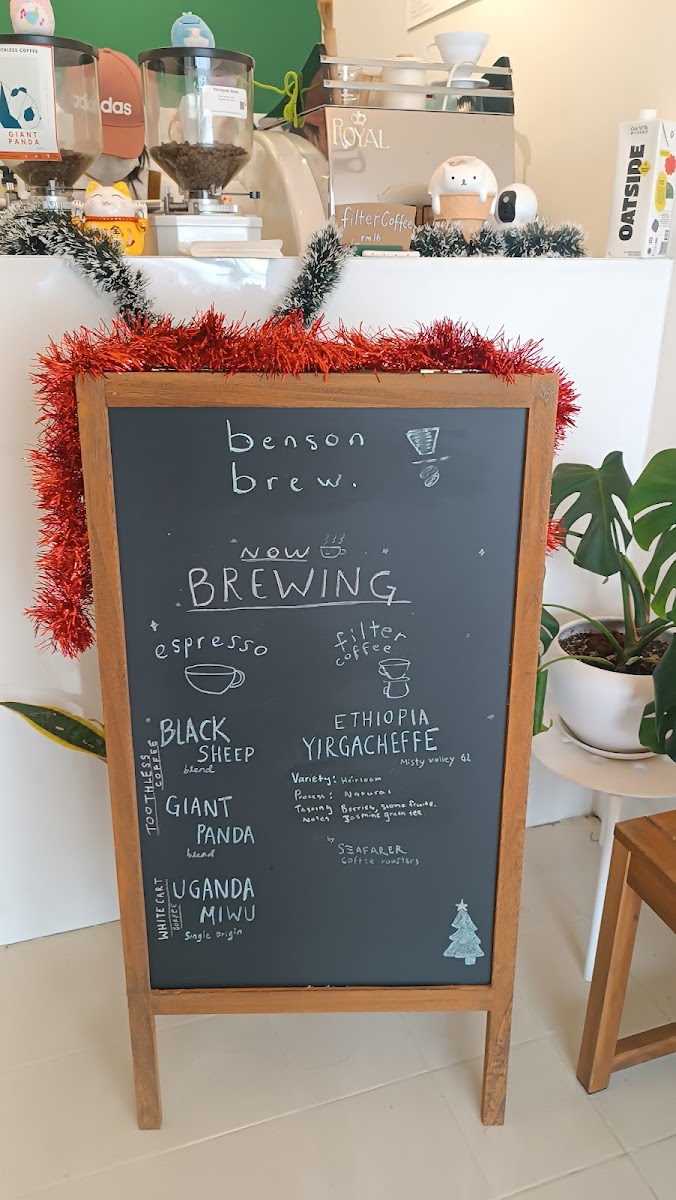 THLESS COFFEE
GIANT
PANDA
adidas
ROYAL
filterCoffee
rm16
OATSIDE
benson
brew.
NOW
BREWING
espresso
filter
coffee
TOOTHLESS
COFFEE
BLACK
SHEEP
blend
GIANT
PANDA
blend
WHITE CART
COFFEE
UGANDA
MIWU
Single Origin
ETHIOPIA
YIRGACHEFFE
Misty Valley G1
Variety: Heirloom
Process: Natural
Tasting Berries, stone fruits.
Notes Jasmine green tea
by
SEAFARER
Coffee roasters